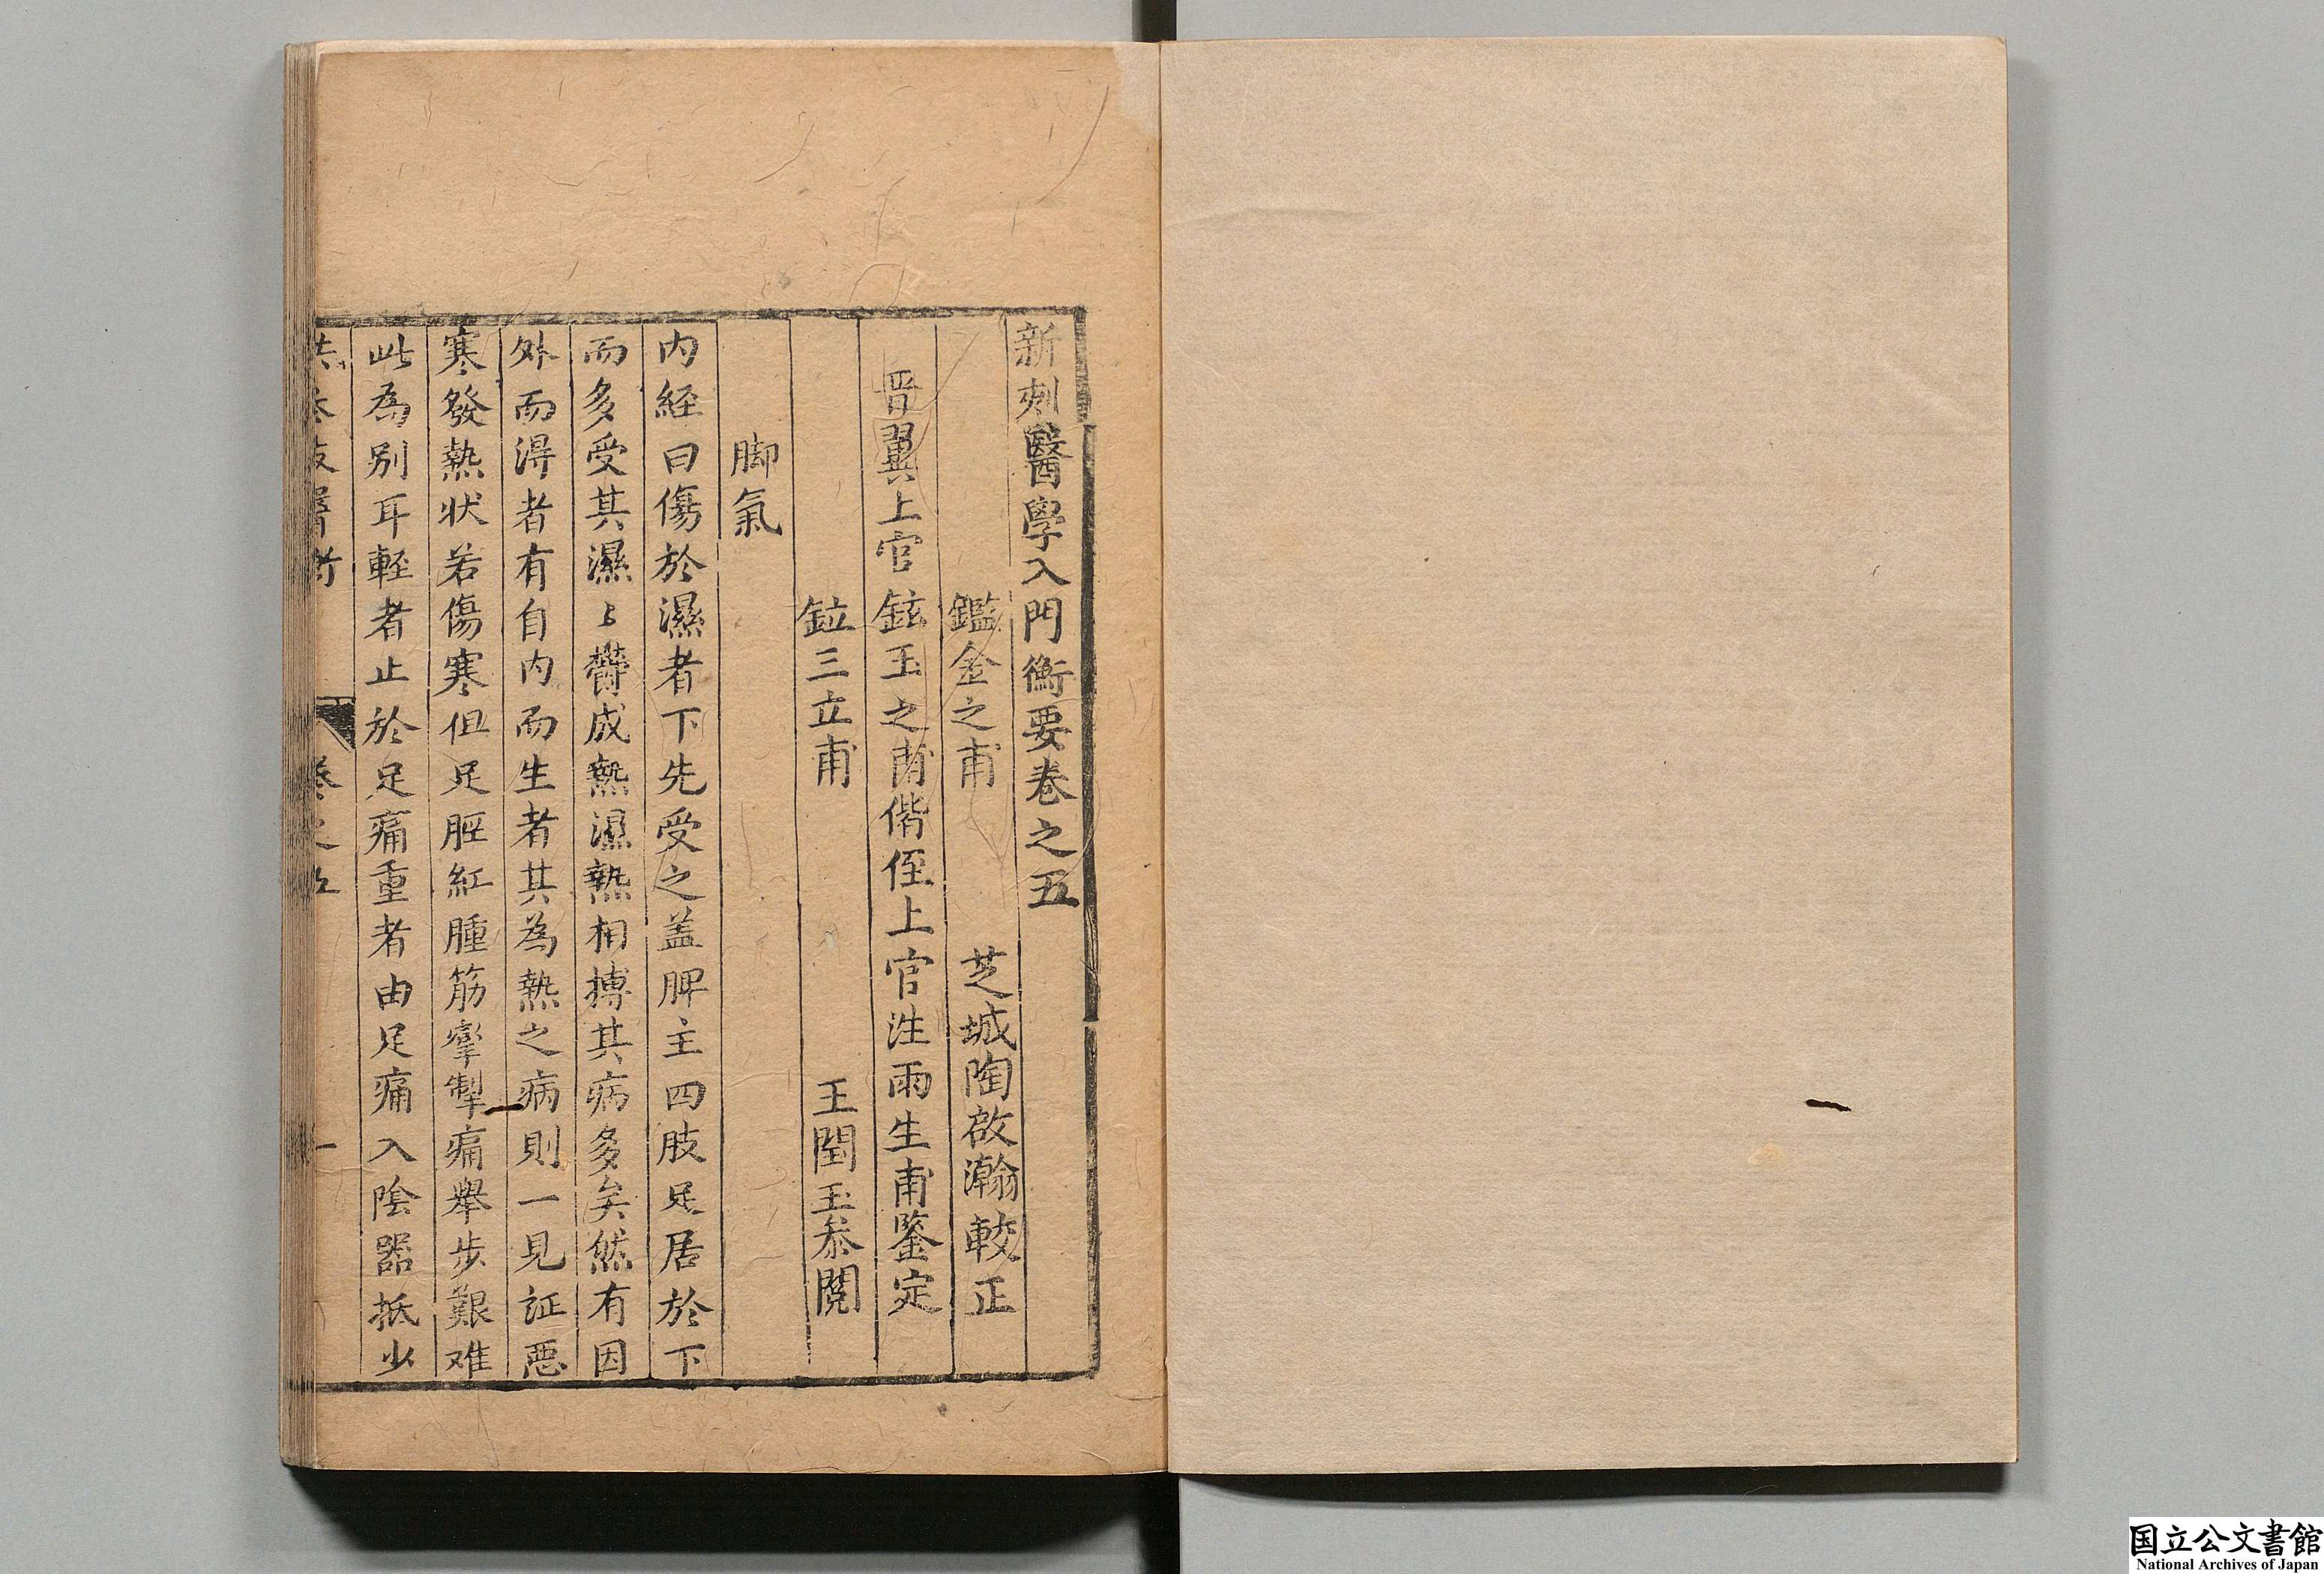 新刻醫學入門衡要卷之五
鑑金之甫　芝城陶啟瀚較正
晋翼上官鉉玉之甫偕侄上官泩雨生甫鑒定
鉝三立甫　王閏玉叅閱
脚氣
内経曰傷於濕者下先受之盖脾主四肢足居於下
而多受其濕〻欝成熱濕熱相搏其病多矣然有因
外而淂者有自内而生者其為熱之病則一見证惡
寒發熱状若傷寒但足脛紅腫筋攣掣痛舉步艱难
此為别耳輊者止於足痛重者由足痛入陰器抵少
卷之五
一
国立公文書館
National Archives of Japan